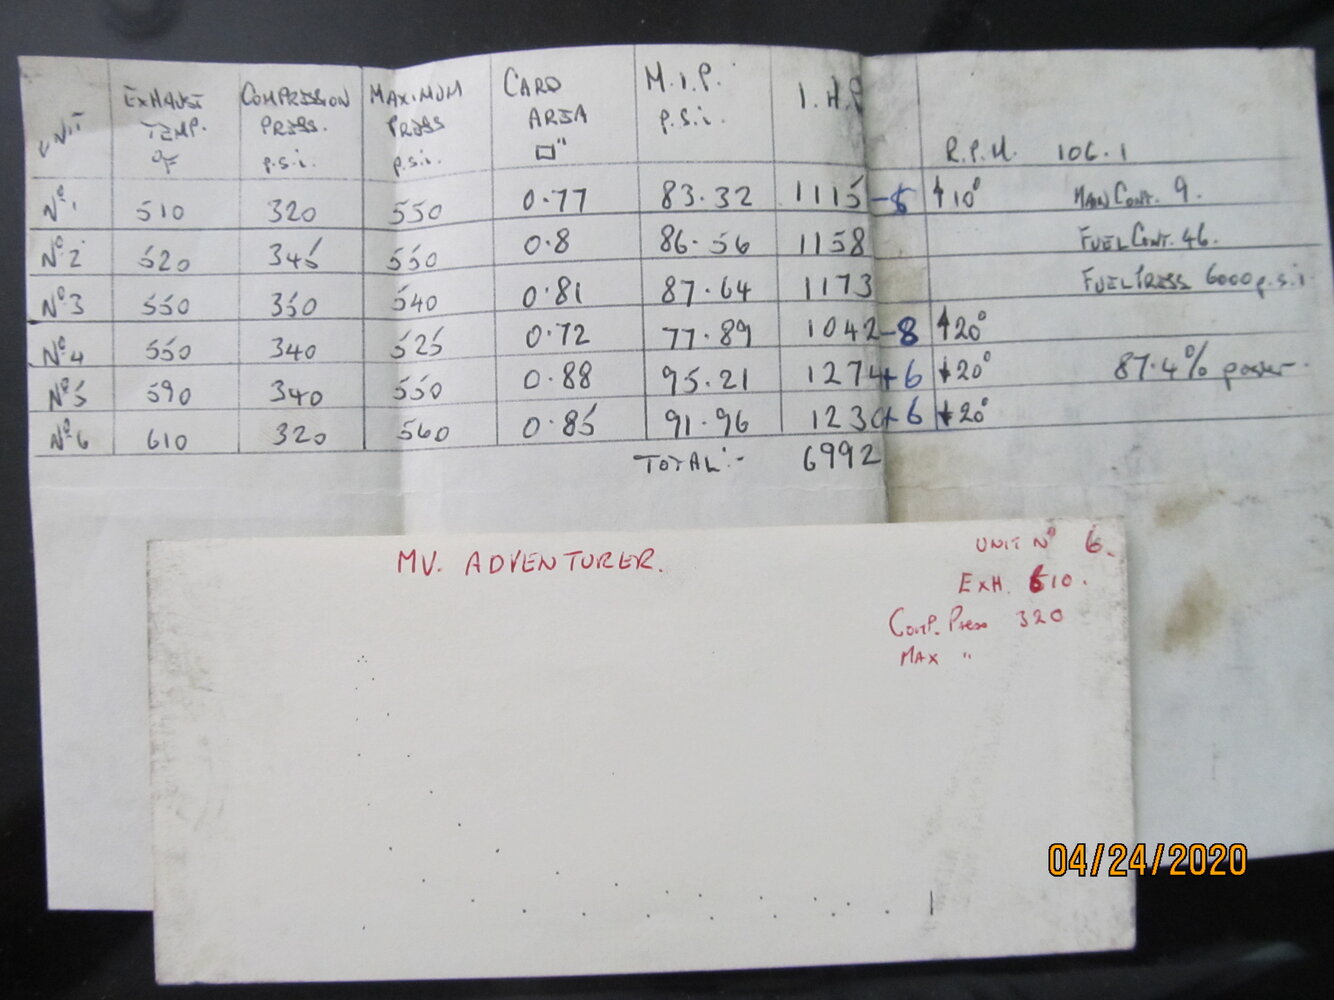 UNIT EXHAUST TEMP. °F COMPRESSION PRESS. p.s.i. MAXIMUM PRESS p.s.i. CARD AREA □" M.I.P. p.s.i. I.H.P R.P.M. 106.1
Nº1 510 320 550 0.77 83.32 1115 -5 10° MAIN CONT. 9.
Nº2 520 345 550 0.8 86.56 1158 FUEL CONT. 46.
Nº3 550 350 540 0.81 87.64 1173 FUEL PRESS 6000 p.s.i.
Nº4 550 340 525 0.72 77.89 1042 -8 20°
Nº5 590 340 550 0.88 95.21 1274 +6 20° 87.4% power.
Nº6 610 320 560 0.85 91.96 1230 +6 20°
TOTAL:- 6992
MV. ADVENTURER.
UNIT Nº 6.
EXH. 610.
COMP. Press 320
MAX "
04/24/2020